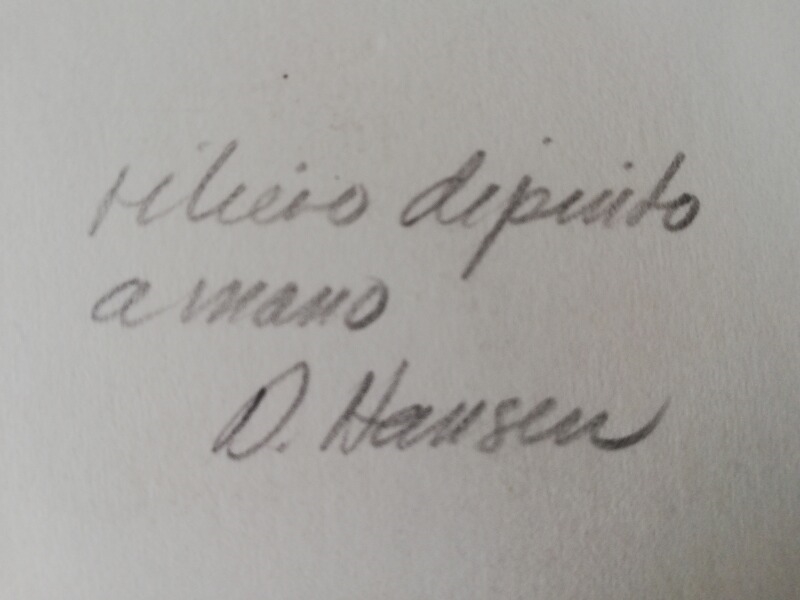 rilievo dipinto
a mano
D. Hansen